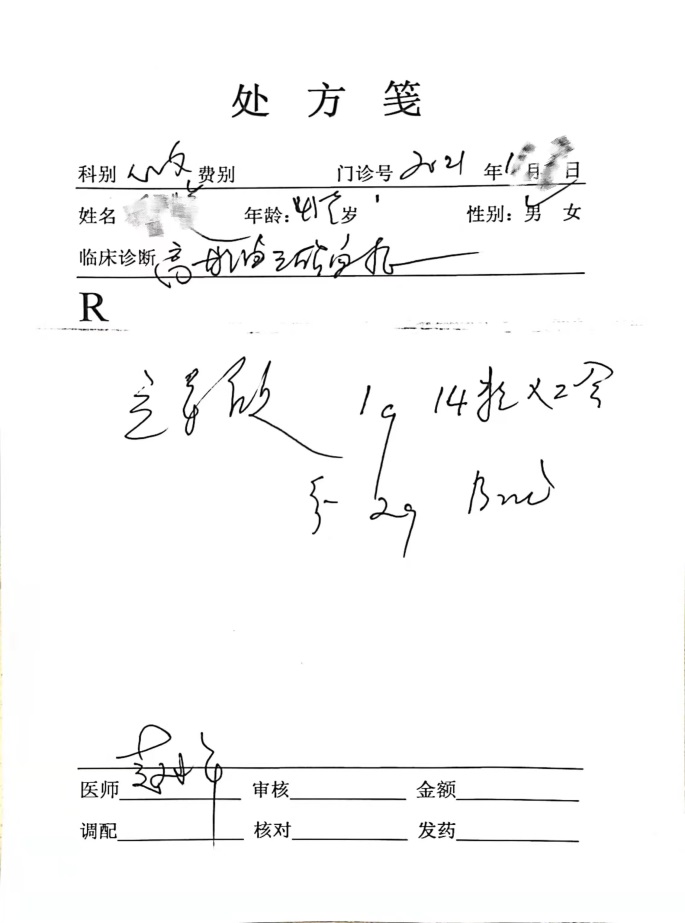 处方笺
科别 心内 费别 门诊号 2021 年 1 月 日
姓名 年龄: 岁 性别: 男 女
临床诊断 高甘油三酯血症
R
1g 14粒 X2盒
2g Bid
医师 审核 金额
调配 核对 发药